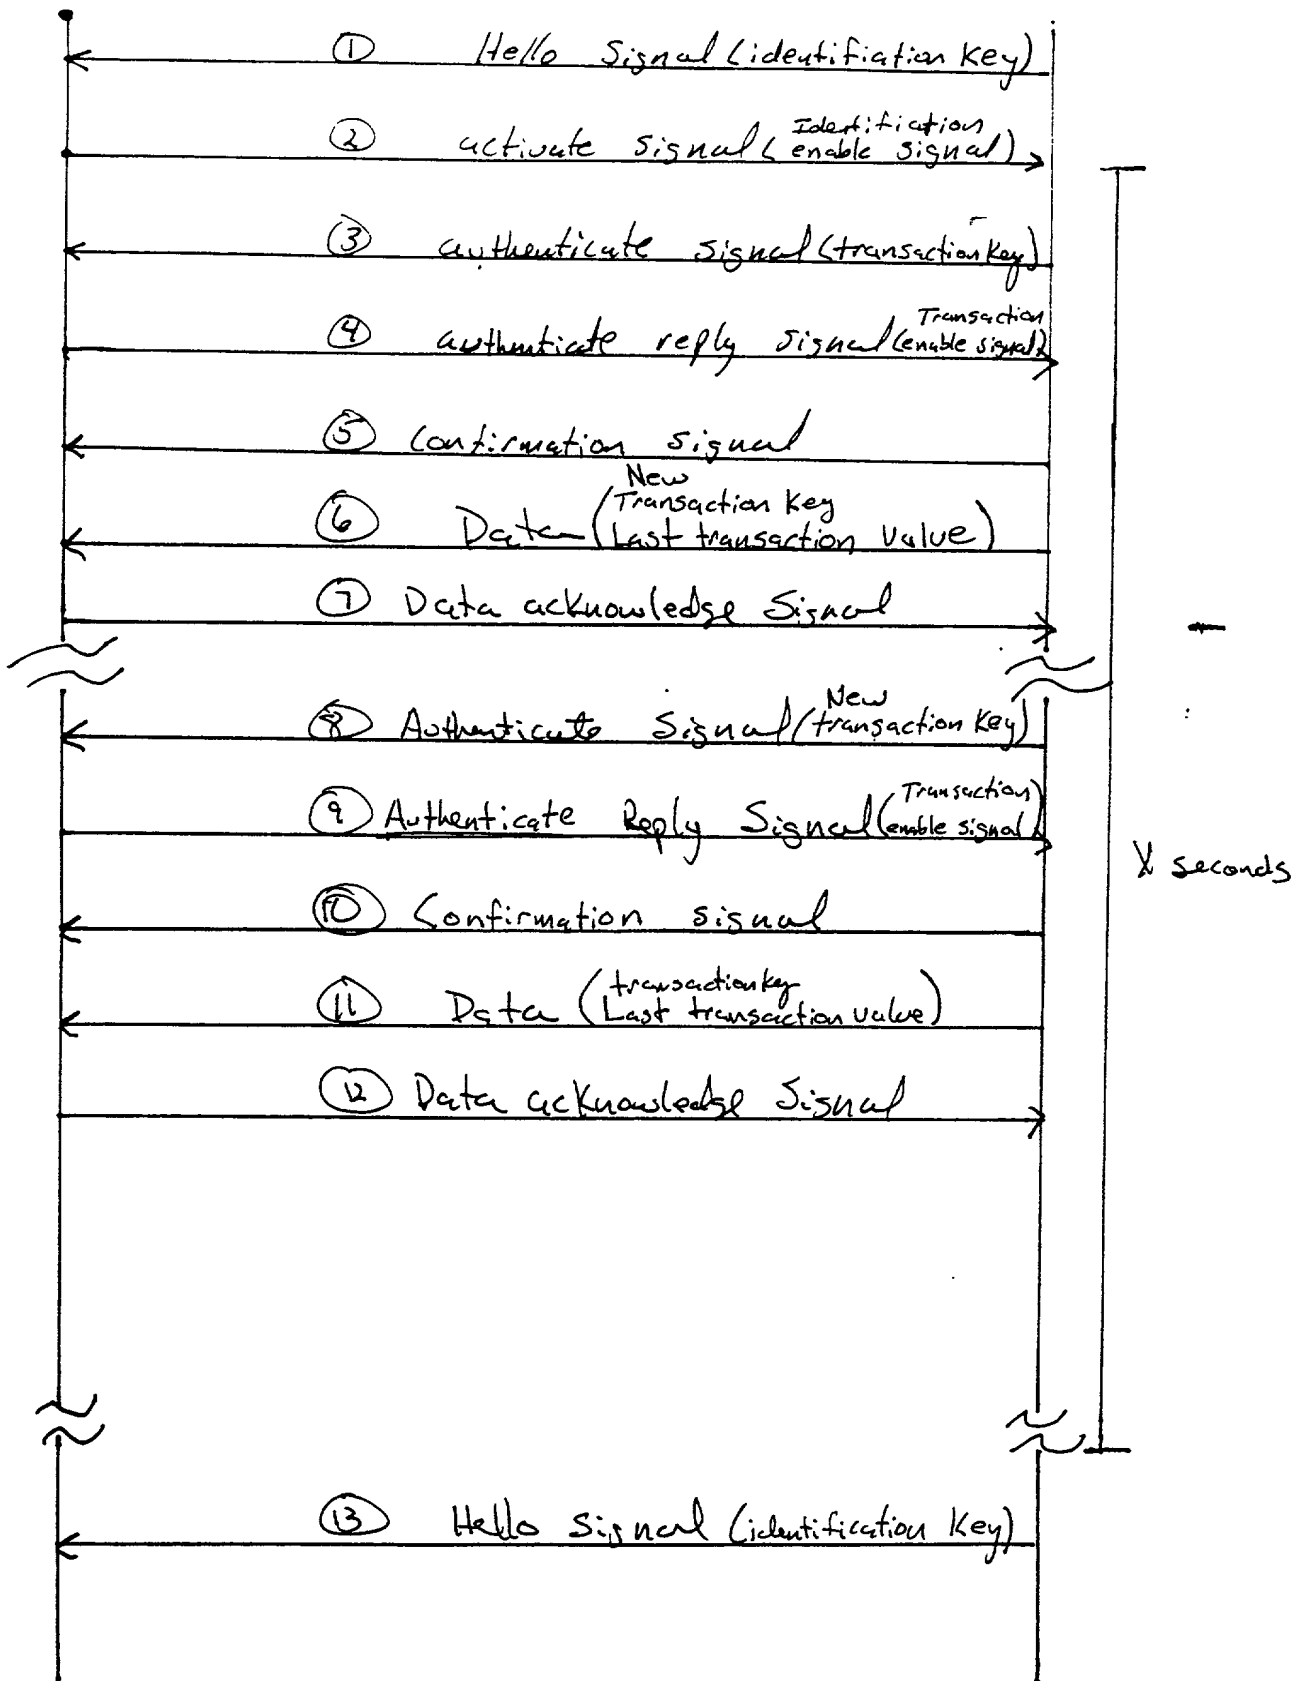 ① Hello Signal (identifiation Key)
② activate signal (Identifiation
enable signal)
③ authenticate signal (transaction Key)
④ authenticate reply signal (Transaction
enable signal)
⑤ Confirmation signal
⑥ Data (New
Transaction Key
Last transaction value)
⑦ Data acknowledge Signal
⑧ Authenticate Signal (New
transaction Key)
⑨ Authenticate Reply Signal (Transaction
enable signal)
X seconds
⑩ Confirmation signal
⑪ Data (transaction key
Last transaction value)
⑫ Data acknowledge Signal
⑬ Hello Signal (identification Key)